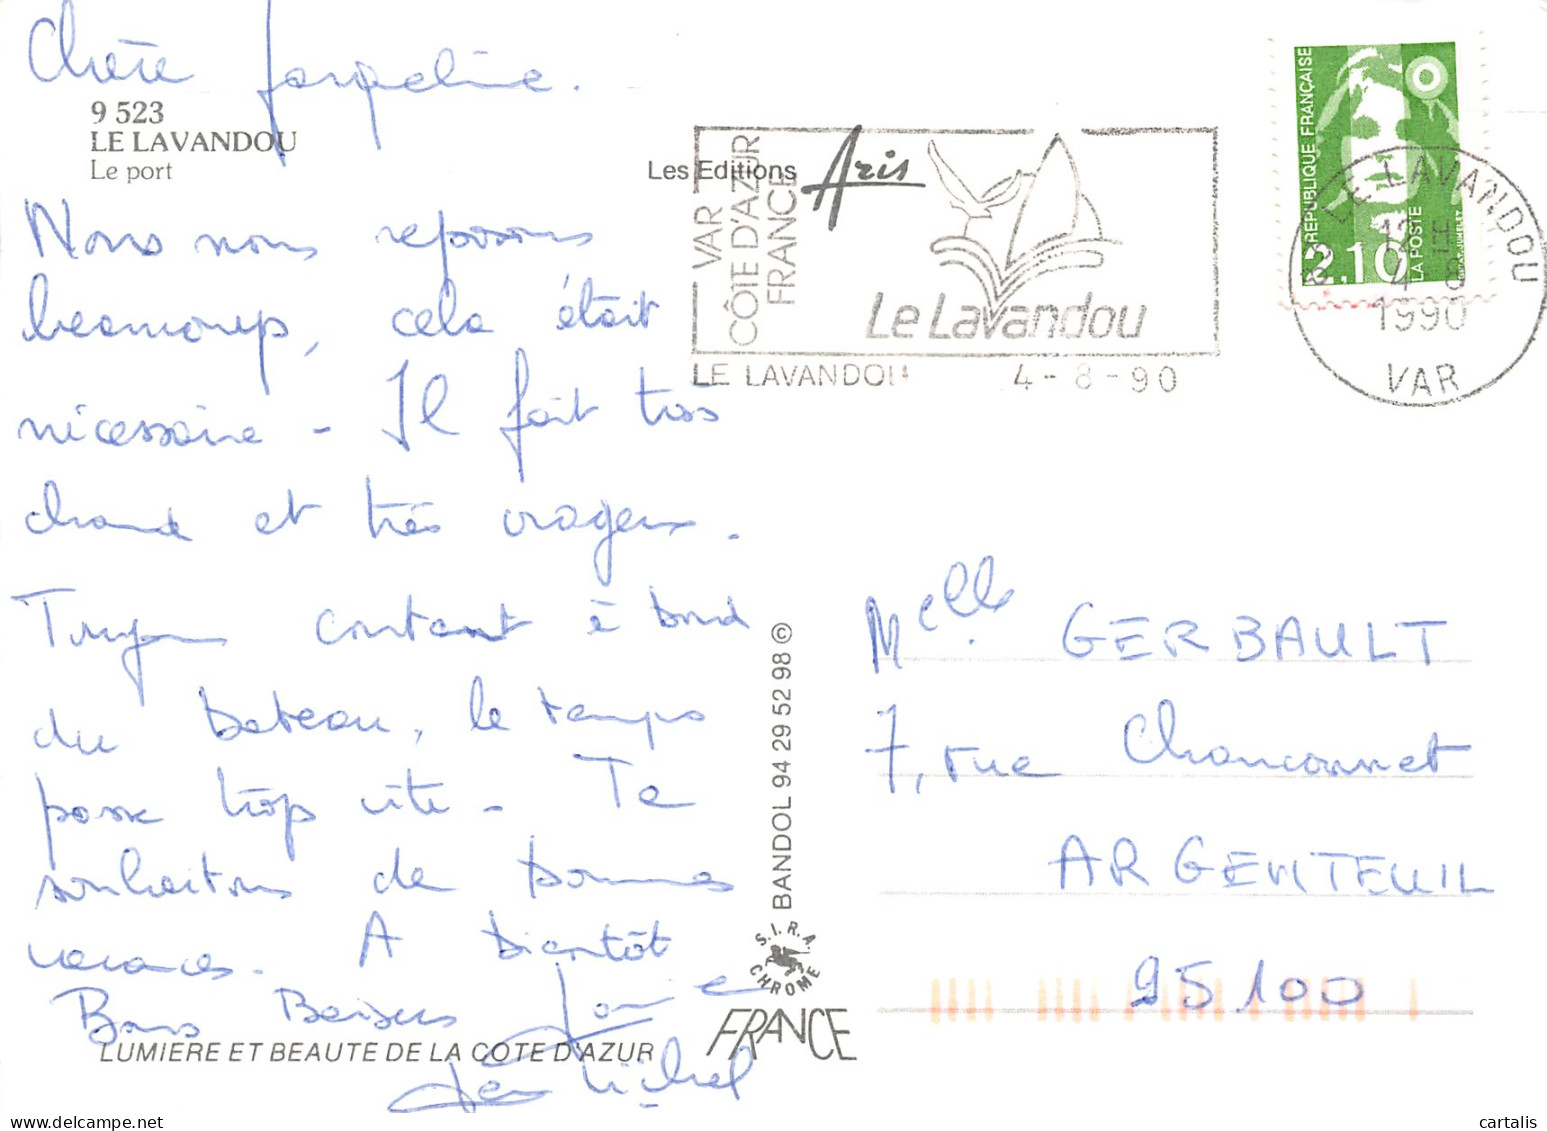 Chère Jacqueline.
9 523
LE LAVANDOU
Le port
Nous nous reposons
beaucoup, cela était
nécessaire - Il fait très
chaud et très orageux.
Toujours contant à bord
du bateau, le temps
passe trop vite - Te
souhaitons de bonnes
vacances. A bientôt
Bons Baisers
LUMIERE ET BEAUTE DE LA COTE D'AZUR
Jean Michel
Les Editions Aris
VAR
CÔTE D'AZUR
FRANCE
Le Lavandou
LE LAVANDOU 4-8-90
REPUBLIQUE FRANÇAISE
2.10
LA POSTE
LE LAVANDOU
12H
4 8
1990
VAR
BANDOL 94 29 52 98 ©
S.I.R.A.
CHROME
FRANCE
Melle. GERBAULT
7, rue Chauconnet
ARGENTEUIL
95100
cartalis